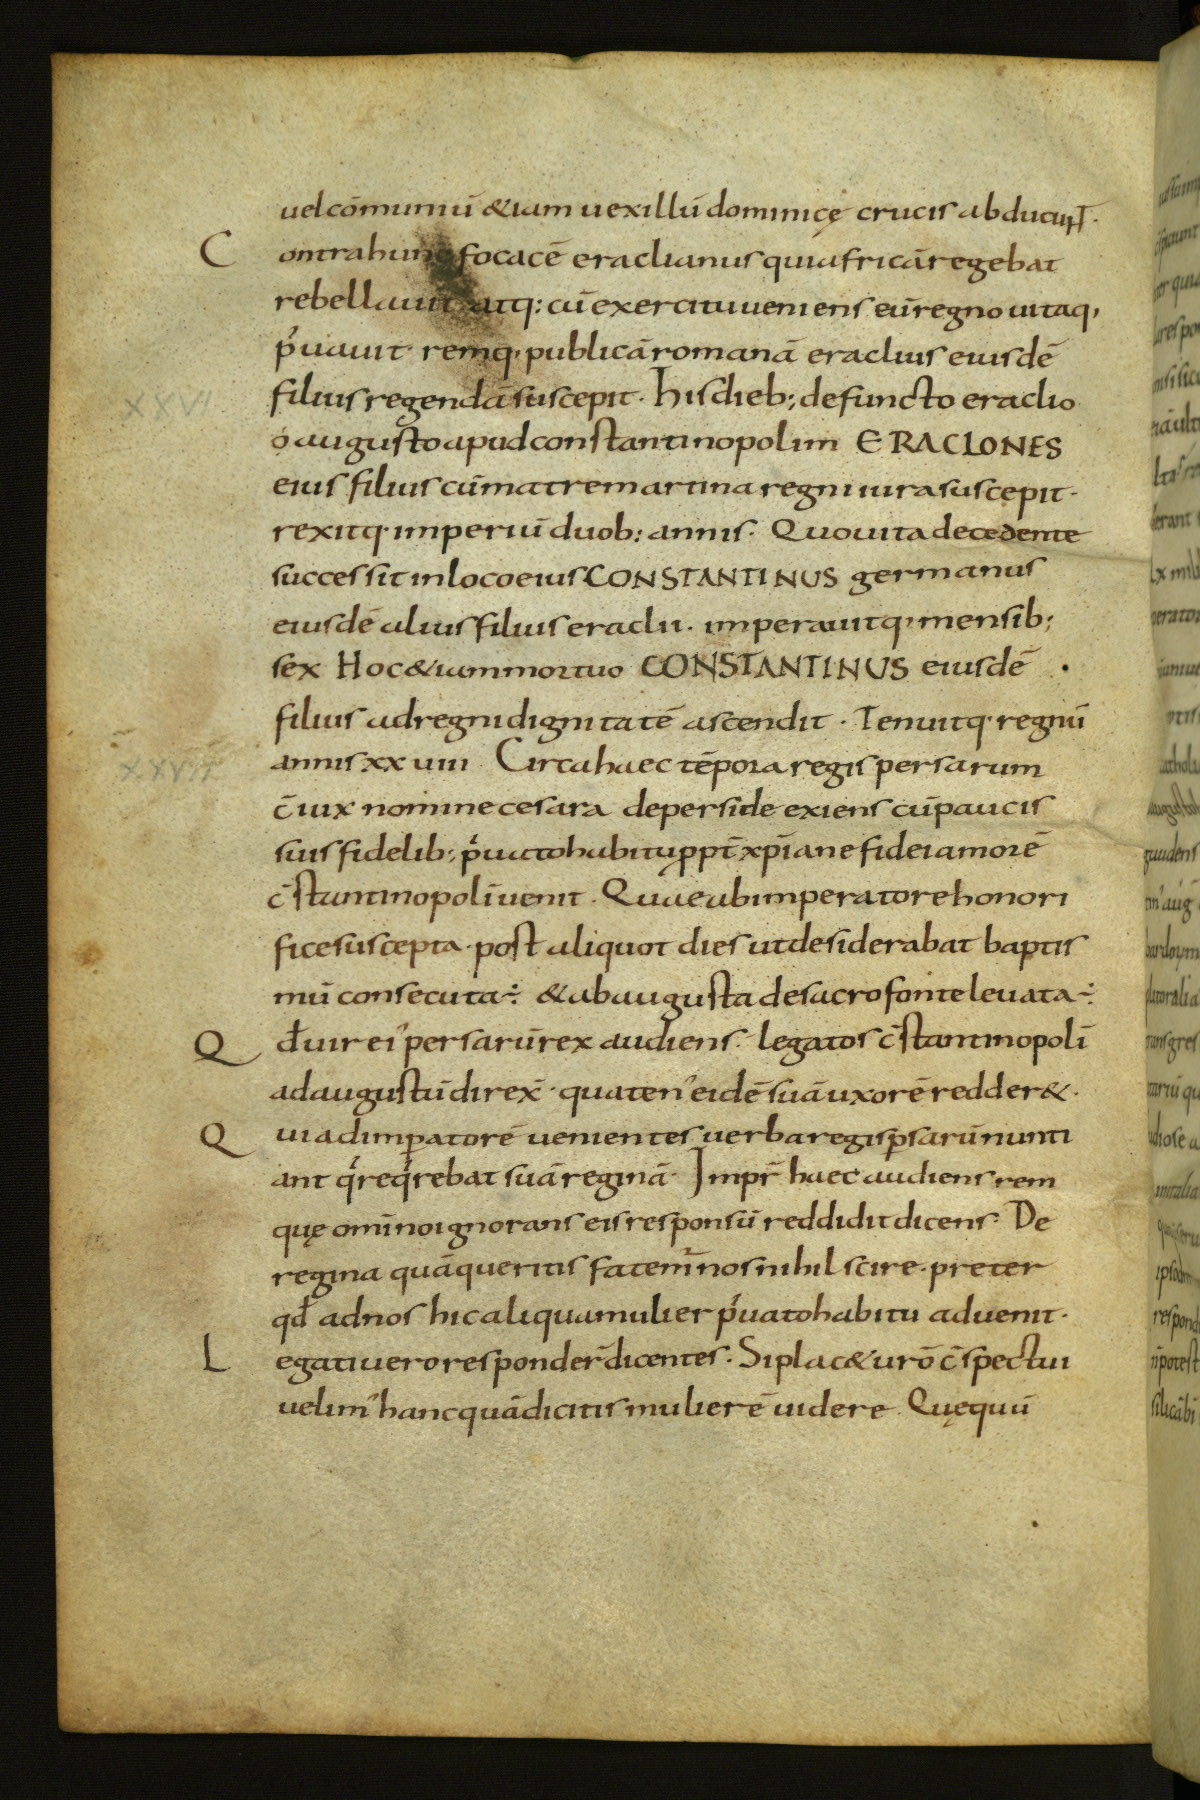 uel cōmuniū &iam uexillū dominicę crucis abducunt.
Contra hunc focacē eraclianus qui africā regebat
rebellauit atq: cū exercitu ueniens eū regno uitaq,
p'uauit. remq, publicā romanā eraclius eiusdē
XXVI filius regendā suscepit. hisdieb; defuncto eraclio
o augusto apud constantinopolim ERACLONES
eius filius cū matre martina regni iura suscepit.
rexitq. imperiū duob: annis. Quo uita decedente
successit in loco eius CONSTANTINUS germanus
eiusdē alius filius eraclii. imperauitq, mensib;
sex Hoc &iam mortuo CONSTANTINUS eiusdē .
filius ad regni dignitatē ascendit. Tenuitq. regnū
XXVII annis xx uiii Circa haec tēpora regis persarum
c̄iux nomine cesara de perside exiens cū paucis
suis fidelib; p'uato habitu ppt̄ xp̄iane fidei amorē
c̄stantinopolī uenit. Quae ab imperatore honori
fice suscepta. post aliquot dies ut desiderabat baptis
mū consecuta÷ & ab augusta de sacro fonte leuata÷
Qđ uir ei' persarū rex audiens. legatos c̄stantinopolī
ad augustū direx̄. quaten' eidē suā uxorē redder&.
Qui ad imperatorē uenientes uerba regis p̱sarū nunti
ant q'req'rebat suā reginā. Impr̄ haec audiens rem
quę omīno ignorans eis responsū reddidit dicens. De
regina quā queritis fatem̄ nos nihil scire. preter
qđ ad nos hic aliqua mulier p'uato habitu aduenit.
Legati uero responder̄ dicentes. Si plac& urō c̄spectui
uelim' hanc quā dicitis mulierē uidere Quę quū